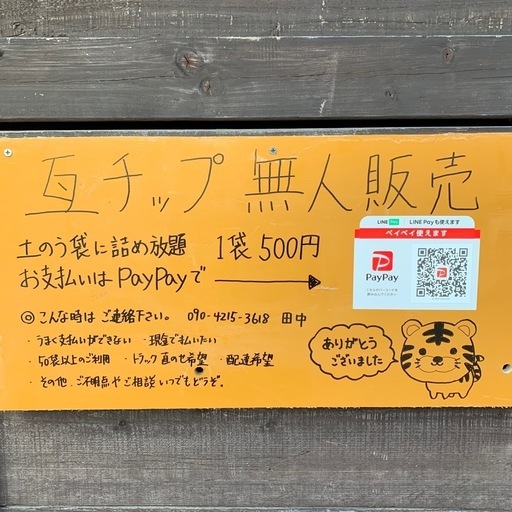 瓦チップ 無人販売
土のう袋に詰め放題 1袋 500円
お支払いは PayPayで →
LINE Pay LINE Payも使えます
ペイペイ使えます
PayPay
◎ こんな時は ご連絡下さい。 090-4215-3618 田中
・うまく支払いができない ・現金で払いたい
・50袋以上のご利用 ・トラック直のせ希望 ・配達希望
・その他、ご不明点やご相談いつでもどうぞ。
ありがとう
ございました